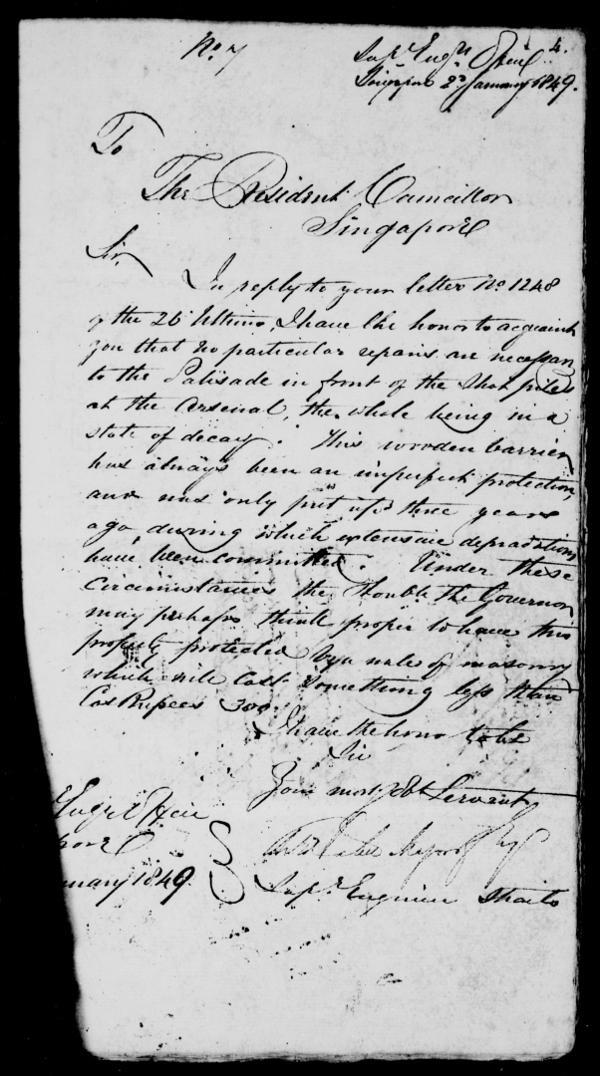 No. 7
4.
Supg. Engrs. Office
Singapore 2d January 1849.
To
The Resident Councillor
Singapore
Sir,
In reply to your letter No. 1248
of the 26 Ultimo, I have the honor to acquaint
you that no particular repairs are necessary
to the Palisade in front of the Shot piles
at the Arsenal, the whole being in a
state of decay. This wooden barrier
has always been an imperfect protection,
and was only put up three years
ago, during which extensive depradations
have been committed. Under these
Circumstances the Honble. the Governor
may perhaps think proper to have this
property protected by a wall of masonry
which will cost something less than
Cos Rupees 300.
I have the honor to be
Sir
Your most Obt Servant
Supg. Engineer Straits
Engr. Office
pore
nuary 1849.